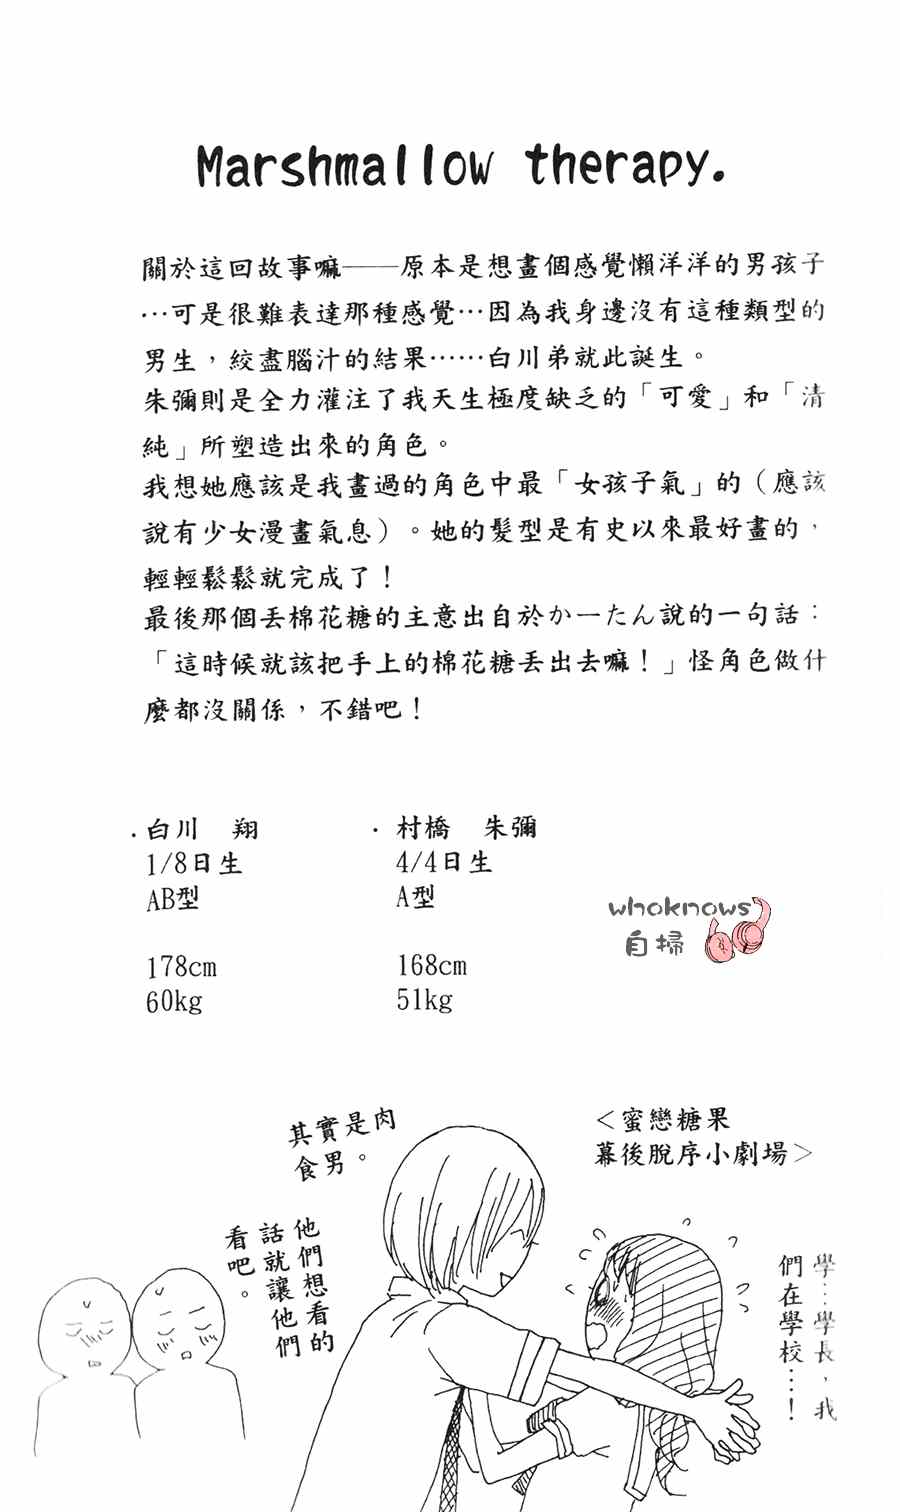 Marshmallow therapy.
關於這回故事嘛——原本是想畫個感覺懶洋洋的男孩子
…可是很難表達那種感覺…因為我身邊沒有這種類型的
男生，絞盡腦汁的結果……白川弟就此誕生。
朱彌則是全力灌注了我天生極度缺乏的「可愛」和「清
純」所塑造出來的角色。
我想她應該是我畫過的角色中最「女孩子氣」的（應該
說有少女漫畫氣息）。她的髮型是有史以來最好畫的，
輕輕鬆鬆就完成了！
最後那個丟棉花糖的主意出自於かーたん說的一句話：
「這時候就該把手上的棉花糖丟出去嘛！」怪角色做什
麼都沒關係，不錯吧！
．白川　翔
1/8日生
AB型
178cm
60kg
．村橋　朱彌
4/4日生
A型
168cm
51kg
whoknows
自掃
＜蜜戀糖果
幕後脫序小劇場＞
其實是肉
食男。
學…學長，我
們在學校…！
他們想看的
話就讓他們
看吧。